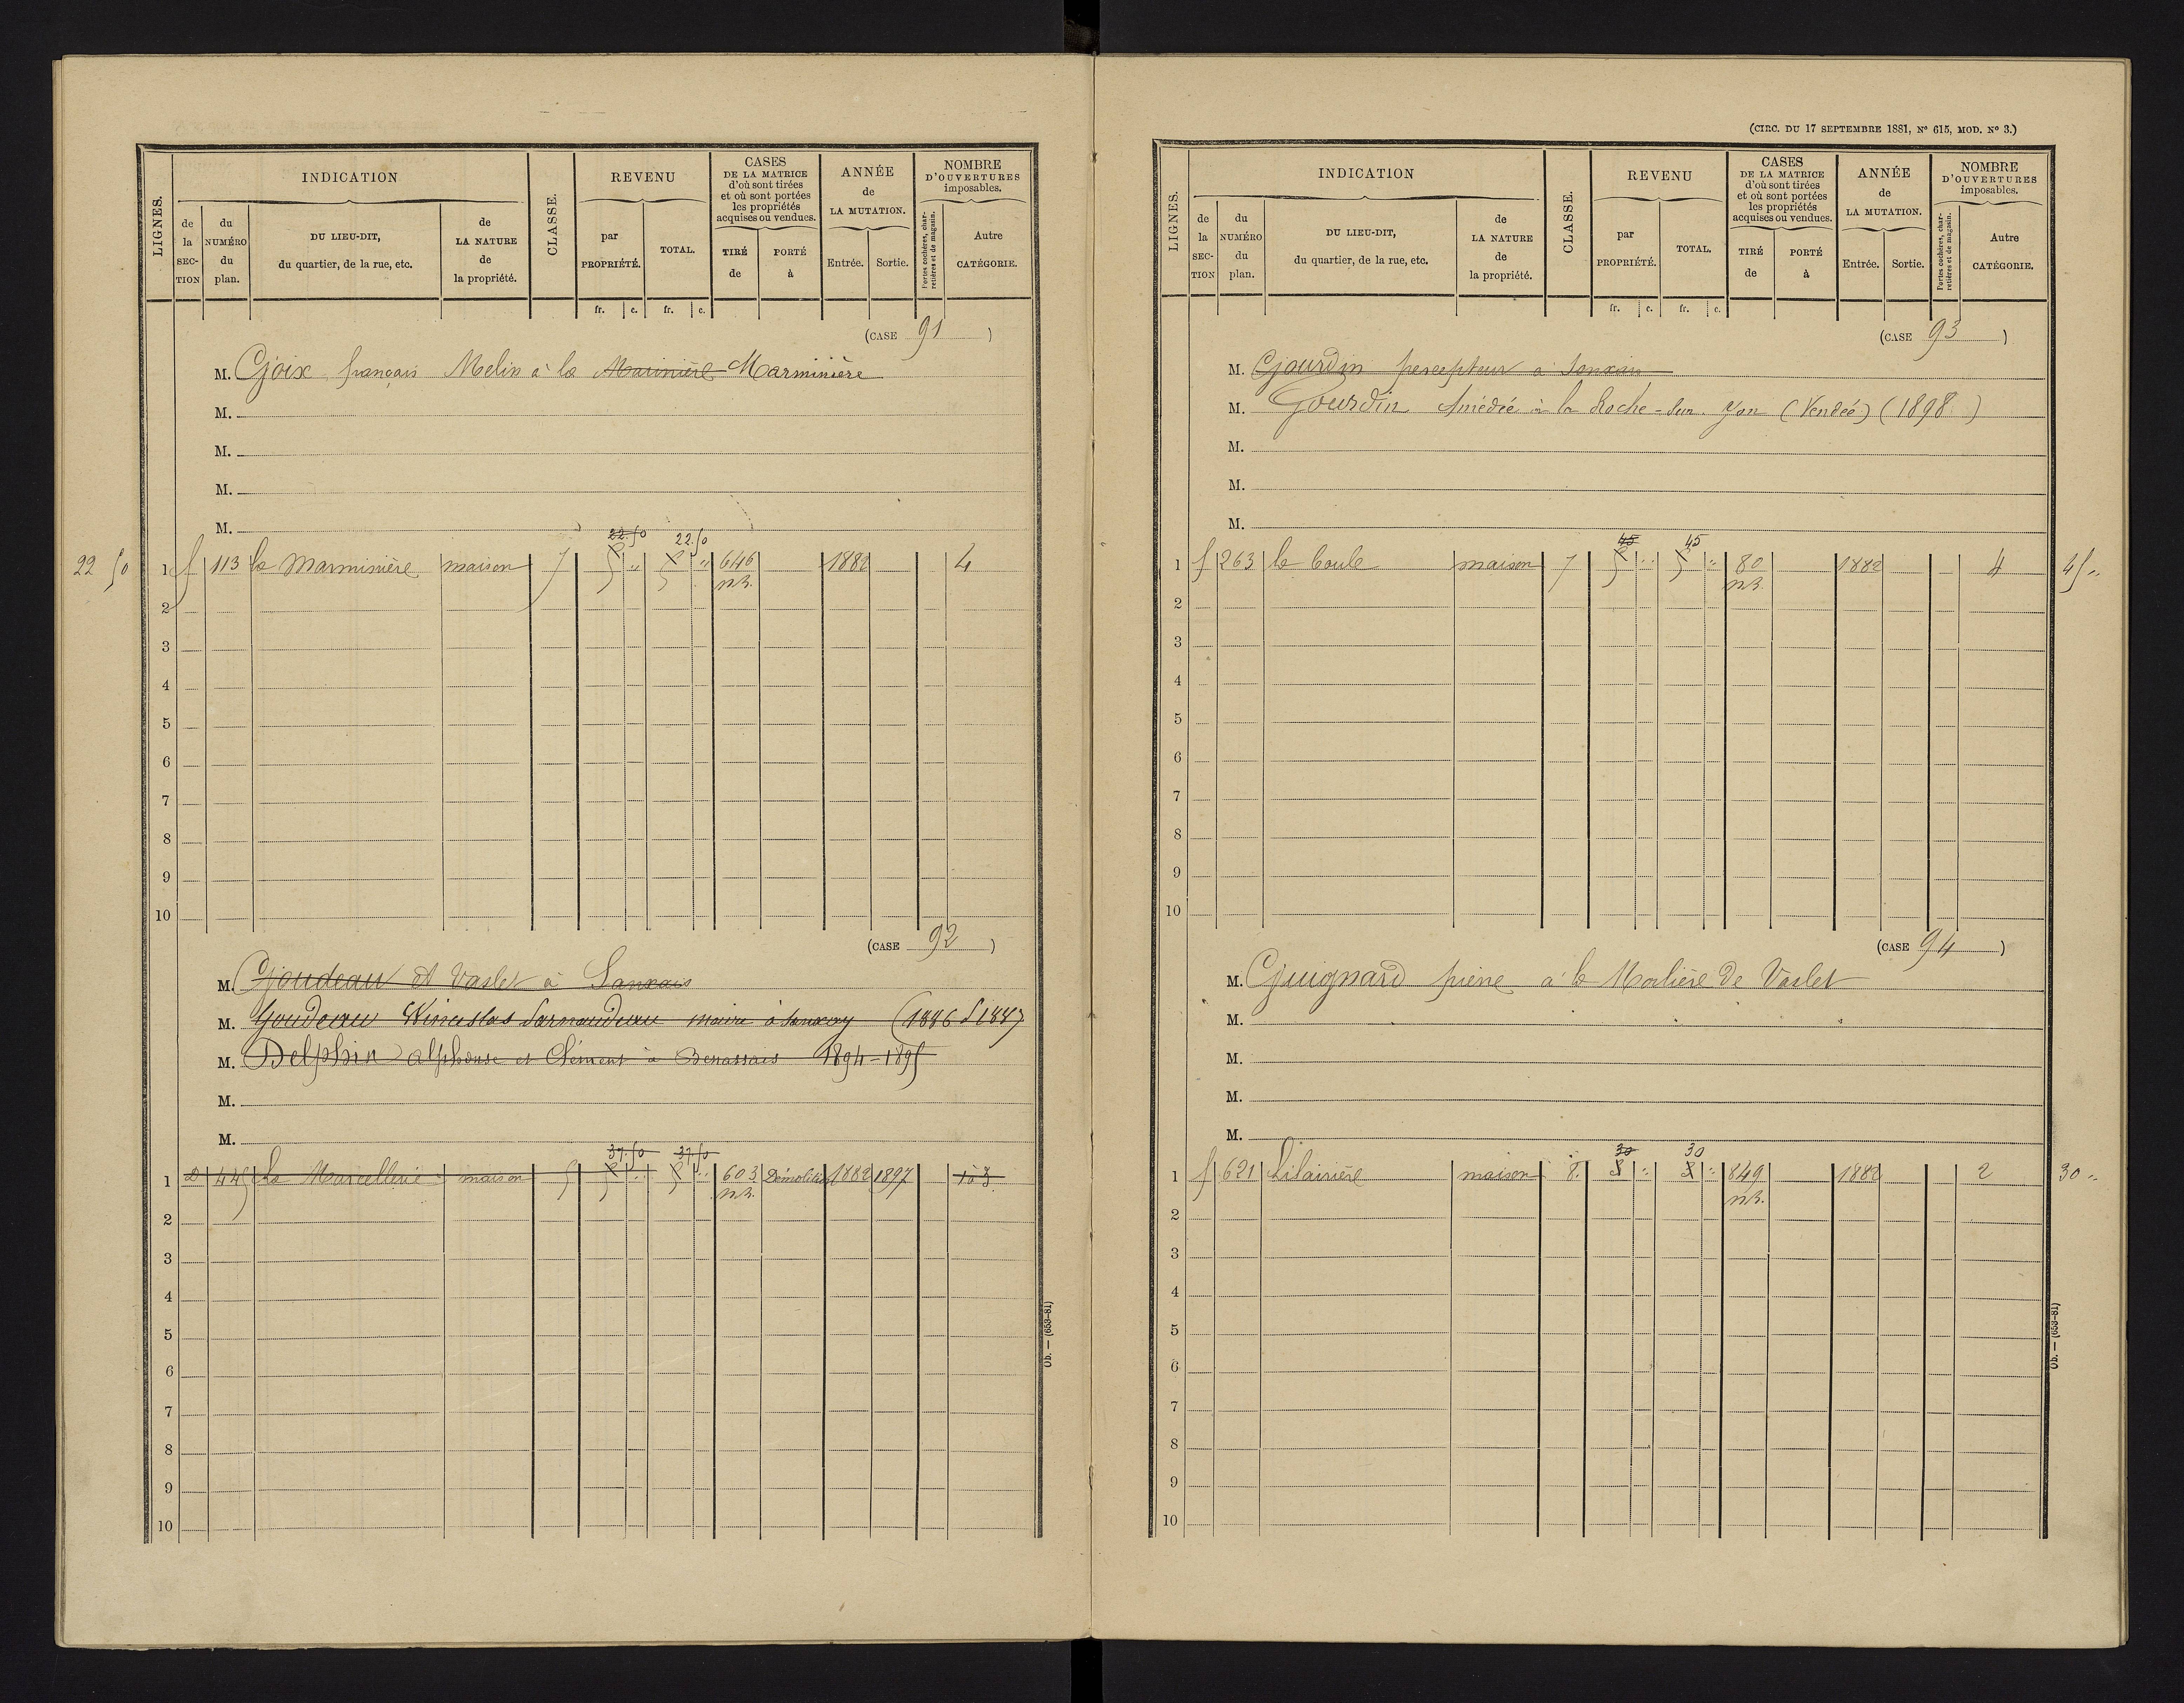 LIGNES.
INDICATION
de la SECTION
du NUMÉRO du plan.
DU LIEU-DIT, du quartier, de la rue, etc.
de LA NATURE de la propriété.
CLASSE.
REVENU
par PROPRIÉTÉ.
TOTAL.
fr. c. fr. c.
CASES DE LA MATRICE d'où sont tirées et où sont portées les propriétés acquises ou vendues.
TIRÉ de
PORTÉ à
ANNÉE de LA MUTATION.
Entrée. Sortie.
NOMBRE D'OUVERTURES imposables.
Portes cochères, charretières et de magasin.
Autre CATÉGORIE.
(CASE 91)
M. Goix français Melin à la Marinière Marminière
M.
M.
M.
M.
22.50 22.50
22 50 1 f 113 la Marminière maison 7 5 " 5 " 646 1882 4
n.b.
2
3
4
5
6
7
8
9
10
(CASE 92)
M. Goudeau à Vaslet à Sanxais
M. Goudeau (1886 1887
M. Delphin alphonse et Clément à Benassais 1894-1895
M.
M.
37.50 37.50
1 D 445 La Marcellerie maison 5 5 " 5 " 603 Démolition 1882 1897
n.b.
2
3
4
5
6
7
8
9
10
Ob. — (653-81)
(CIRC. DU 17 SEPTEMBRE 1881, N° 615, MOD. N° 3.)
LIGNES.
INDICATION
de la SECTION
du NUMÉRO du plan.
DU LIEU-DIT, du quartier, de la rue, etc.
de LA NATURE de la propriété.
CLASSE.
REVENU
par PROPRIÉTÉ.
TOTAL.
fr. c. fr. c.
CASES DE LA MATRICE d'où sont tirées et où sont portées les propriétés acquises ou vendues.
TIRÉ de
PORTÉ à
ANNÉE de LA MUTATION.
Entrée. Sortie.
NOMBRE D'OUVERTURES imposables.
Portes cochères, charretières et de magasin.
Autre CATÉGORIE.
(CASE 93)
M. Gourdin percepteur à
M. Gourdin Amédée à la Roche-sur-Yon (Vendée) (1898)
M.
M.
M.
45 45
1 f 263 la Coule maison 7 5 " 5 " 80 1882 4 45 "
n.b.
2
3
4
5
6
7
8
9
10
(CASE 94)
M. Guignard pierre à la Morlière de Vaslet
M.
M.
M.
M.
30 30
1 f 621 Lilairière maison 8. 3 " 3 " 849 1882 2 30 "
n.b.
2
3
4
5
6
7
8
9
10
Ob. — (653-81)